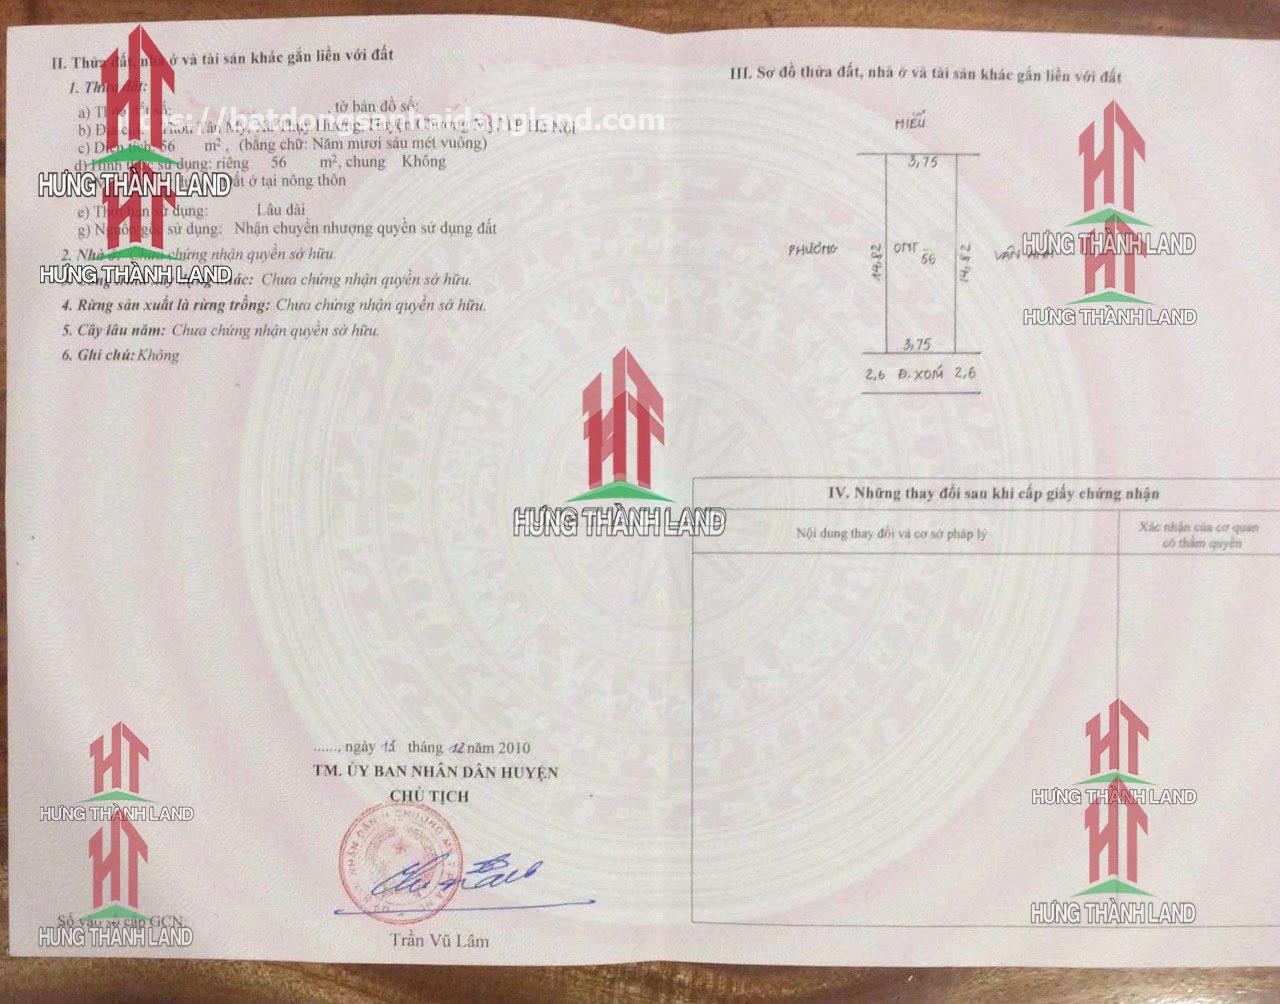 II. Thửa đất, nhà ở và tài sản khác gắn liền với đất
1. Thửa đất:
a) Thửa đất số: , tờ bản đồ số:
https://batdongsanhaidangland.com
b) Địa chỉ: Thôn Tân Mỹ, Xã Thụy Hương, Huyện Chương Mỹ, TP Hà Nội
c) Diện tích: 56 m², (bằng chữ: Năm mươi sáu mét vuông)
d) Hình thức sử dụng: riêng 56 m², chung Không
đất ở tại nông thôn
e) Thời hạn sử dụng: Lâu dài
g) Nguồn gốc sử dụng: Nhận chuyển nhượng quyền sử dụng đất
2. Nhà ở: Chưa chứng nhận quyền sở hữu.
khác: Chưa chứng nhận quyền sở hữu.
4. Rừng sản xuất là rừng trồng: Chưa chứng nhận quyền sở hữu.
5. Cây lâu năm: Chưa chứng nhận quyền sở hữu.
6. Ghi chú: Không
HƯNG THÀNH LAND
HƯNG THÀNH LAND
......, ngày 15 tháng 12 năm 2010
TM. ỦY BAN NHÂN DÂN HUYỆN
CHỦ TỊCH
Trần Vũ Lâm
Số vào sổ cấp GCN:
HƯNG THÀNH LAND
HƯNG THÀNH LAND
HƯNG THÀNH LAND
III. Sơ đồ thửa đất, nhà ở và tài sản khác gắn liền với đất
HIẾU
3,75
PHƯƠNG
14,82
ONT
56
14,82
VÂN
3,75
2,6 Đ. XÓM 2,6
HƯNG THÀNH LAND
HƯNG THÀNH LAND
IV. Những thay đổi sau khi cấp giấy chứng nhận
Nội dung thay đổi và cơ sở pháp lý
Xác nhận của cơ quan
có thẩm quyền
HƯNG THÀNH LAND
HƯNG THÀNH LAND